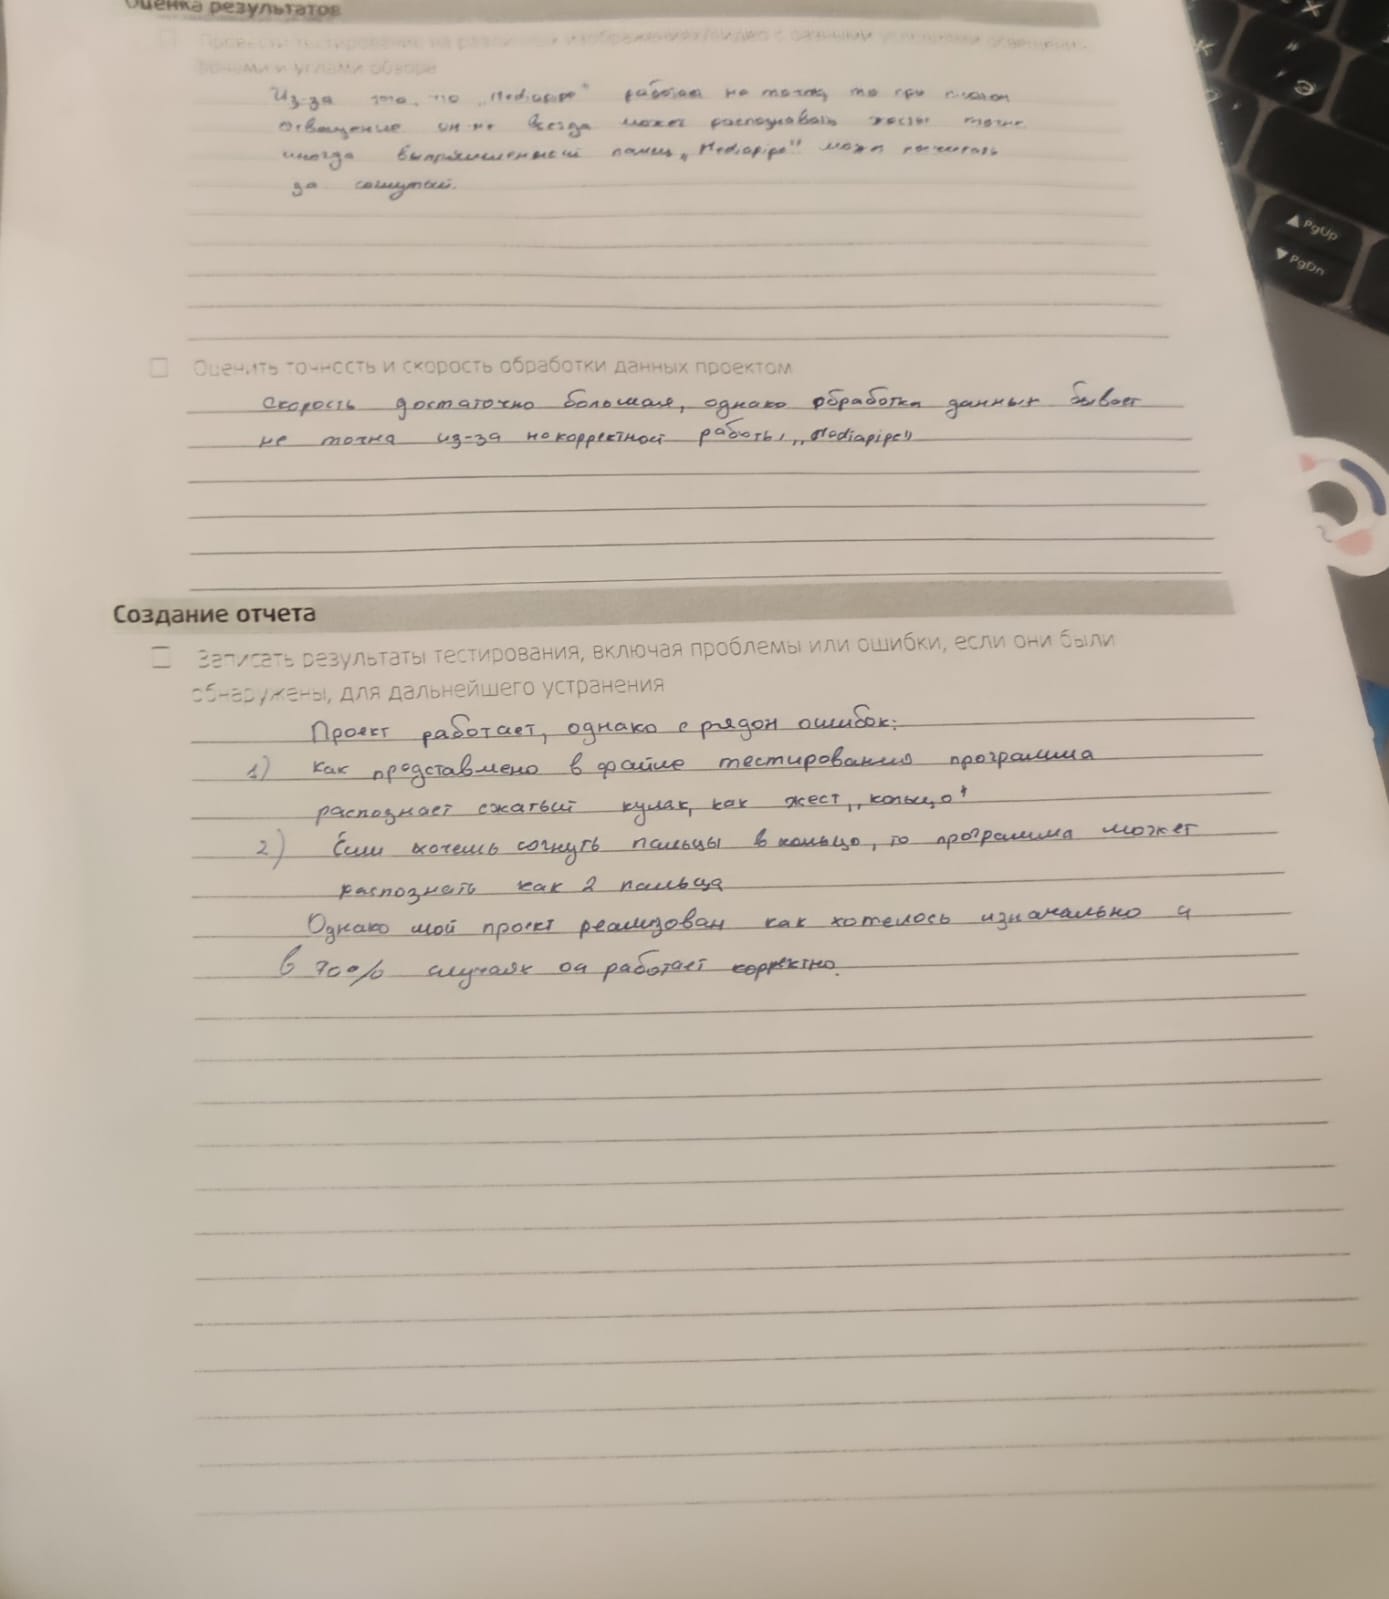 Оценка результатов
Провести тестирование на различных изображениях/видео с разными условиями освещения,
фонами и углами обзора
Из-за того, что „Mediapipe" работает не точно, то при плохом
освещение он не всегда может распознавать жесты точно
иногда выпрямленный палец „Mediapipe" может посчитать
за согнутый.
Оценить точность и скорость обработки данных проектом
Скорость достаточно большая, однако обработка данных бывает
не точна из-за некорректной работы „Mediapipe"
Создание отчета
Записать результаты тестирования, включая проблемы или ошибки, если они были
обнаружены, для дальнейшего устранения
Проект работает, однако с рядом ошибок:
1) Как представлено в файле тестирования программа
распознает сжатый кулак, как жест „кольцо"
2) Если хочешь согнуть пальцы в кольцо, то программа может
распознать как 2 пальца
Однако мой проект реализован как хотелось изначально и
в 70% случаях он работает корректно.
PgUp
PgDn